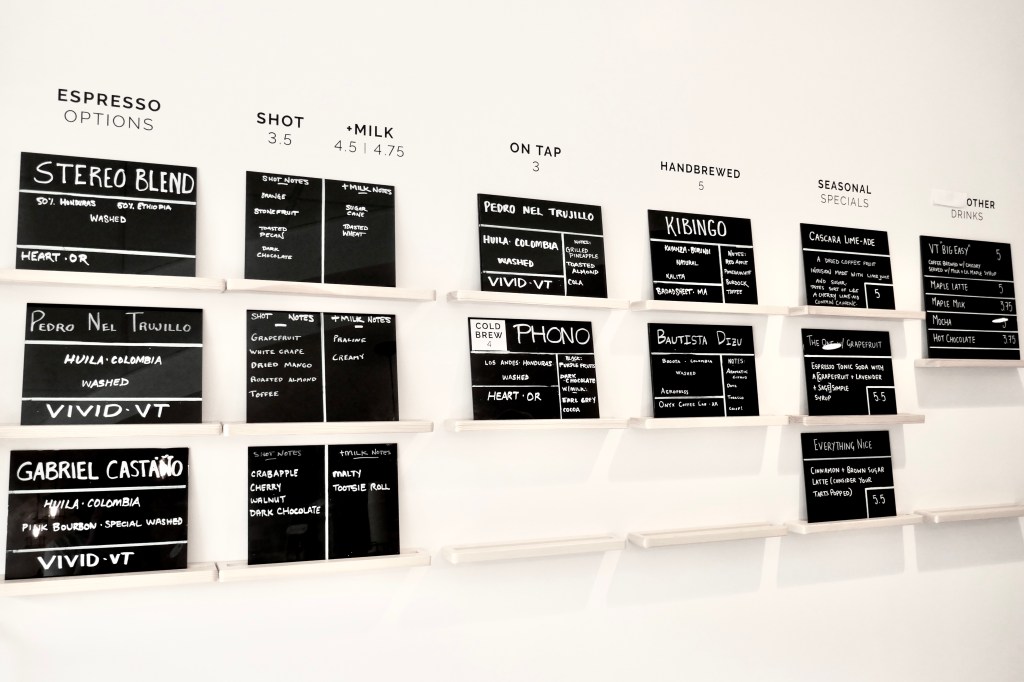 ESPRESSO
OPTIONS
STEREO BLEND
50% HONDURAS 50% ETHIOPIA
WASHED
HEART · OR
PEDRO NEL TRUJILLO
HUILA · COLOMBIA
WASHED
VIVID · VT
GABRIEL CASTAÑO
HUILA · COLOMBIA
PINK BOURBON · SPECIAL WASHED
VIVID · VT
SHOT
3.5
+MILK
4.5 | 4.75
SHOT NOTES
MANGE
STONEFRUIT
TOASTED
PECAN
DARK
CHOCOLATE
+MILK NOTES
SUGAR
CANE
TOASTED
WHEAT
SHOT NOTES
GRAPEFRUIT
WHITE GRAPE
DRIED MANGO
ROASTED ALMOND
TOFFEE
+MILK NOTES
PRALINE
CREAMY
SHOT NOTES
CRABAPPLE
CHERRY
WALNUT
DARK CHOCOLATE
+MILK NOTES
MALTY
TOOTSIE ROLL
ON TAP
3
PEDRO NEL TRUJILLO
HUILA · COLOMBIA
WASHED
VIVID · VT
NOTES:
GRILLED
PINEAPPLE
TOASTED
ALMOND
COLA
COLD
BREW
4
PHONO
LOS ANDES · HONDURAS
WASHED
HEART · OR
BLACK:
PURPLE FRUITS
DARK
CHOCOLATE
W/MILK:
EARL GREY
COCOA
HANDBREWED
5
KIBINGO
KAYANZA · BURUNDI
NATURAL
KALITA
BROADSHEET · MA
NOTES:
RED APPLE
BURDOCK
TOFFEE
BAUTISTA DIZU
BOGOTA · COLOMBIA
WASHED
AEROPRESS
ONYX COFFEE LAB · AR
NOTES:
SEASONAL
SPECIALS
CASCARA LIME-ADE
A DRIED COFFEE FRUIT
INFUSION MADE WITH LIME JUICE
AND SUGAR.
TASTES SORT OF LIKE
A CHERRY LIME-ADE
CONTAINS CAFFEINE
5
THE W/ GRAPEFRUIT
ESPRESSO TONIC SODA WITH
A GRAPEFRUIT + LAVENDER
+ SAGE SIMPLE
SYRUP
5.5
EVERYTHING NICE
CINNAMON + BROWN SUGAR
LATTE (CONSIDER YOUR
TARTS POPPED)
5.5
OTHER
DRINKS
VT "BIG EASY" 5
COFFEE BREWED W/ CHICORY
SERVED W/ MILK + VT MAPLE SYRUP
MAPLE LATTE 5
MAPLE MILK 3.75
MOCHA
HOT CHOCOLATE 3.75